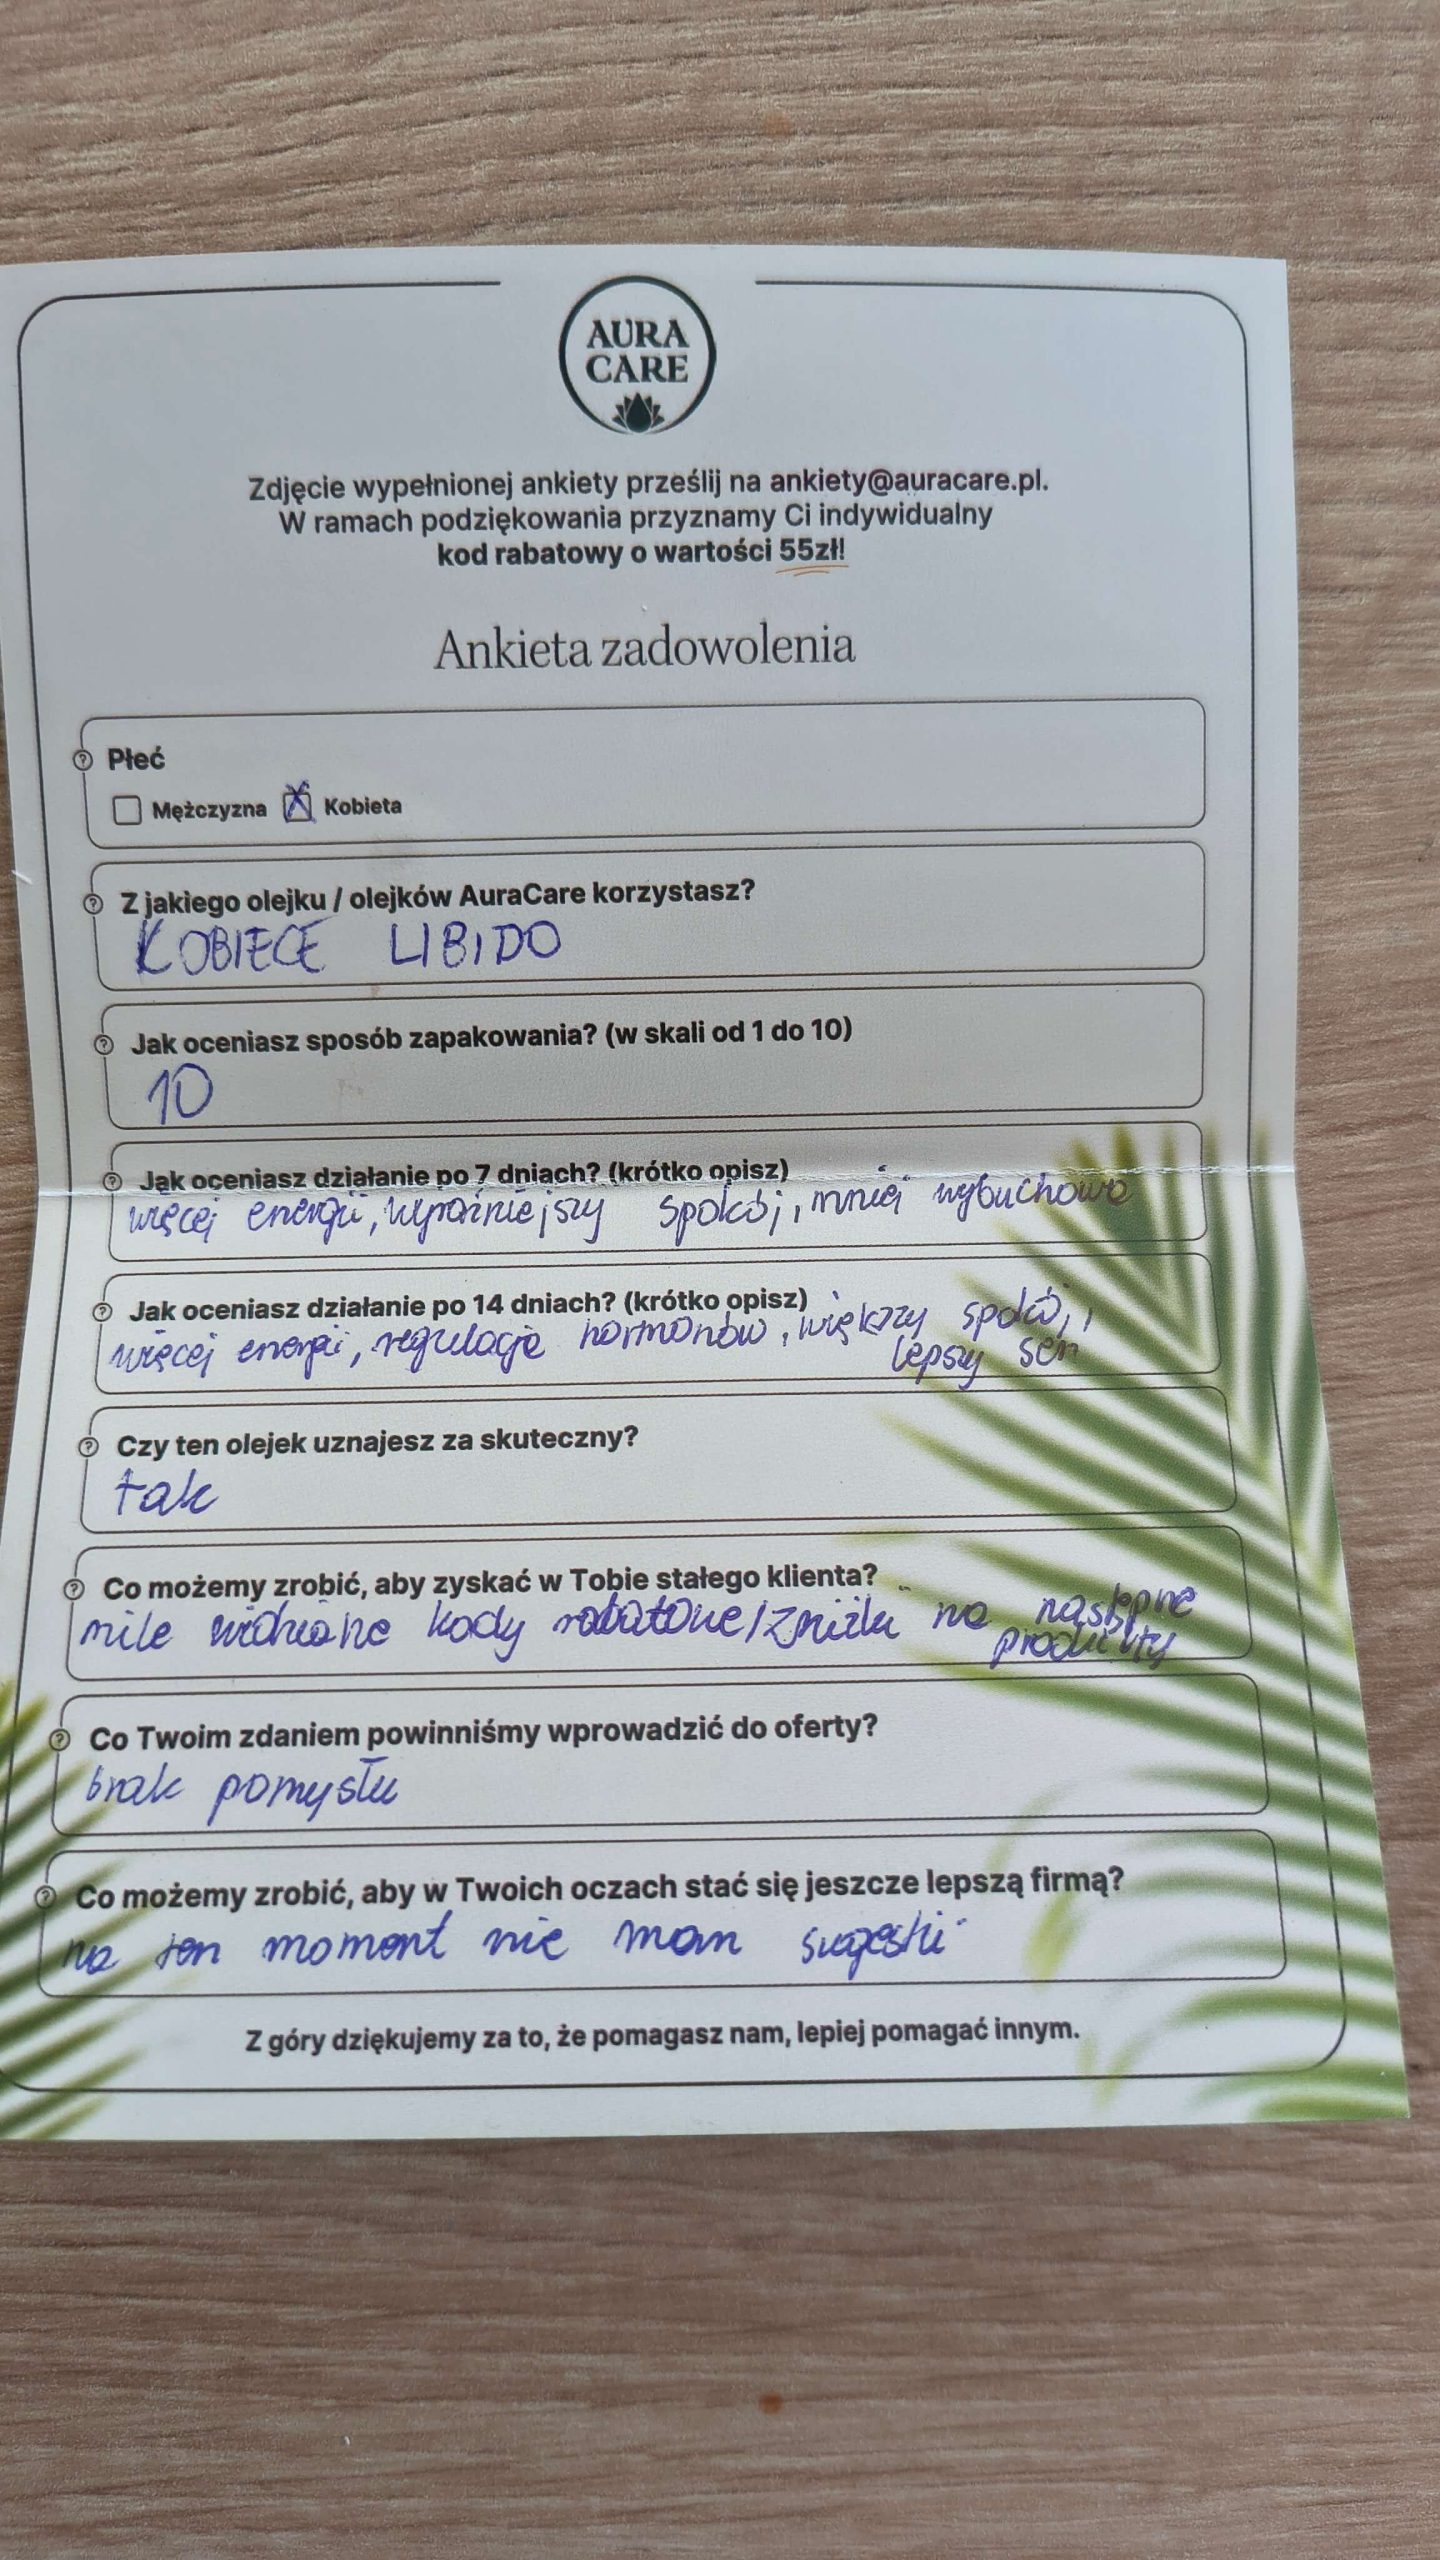 AURA
CARE
Zdjęcie wypełnionej ankiety prześlij na ankiety@auracare.pl.
W ramach podziękowania przyznamy Ci indywidualny
kod rabatowy o wartości 55zł!
Ankieta zadowolenia
Płeć
Mężczyzna X Kobieta
Z jakiego olejku / olejków AuraCare korzystasz?
KOBIECE LIBIDO
Jak oceniasz sposób zapakowania? (w skali od 1 do 10)
10
Jak oceniasz działanie po 7 dniach? (krótko opisz)
więcej energii, wyraźniejszy spokój, mniej wybuchowa
Jak oceniasz działanie po 14 dniach? (krótko opisz)
więcej energii, regulacja hormonów, większy spokój,
lepszy sen
Czy ten olejek uznajesz za skuteczny?
tak
Co możemy zrobić, aby zyskać w Tobie stałego klienta?
mile widziane kody rabatowe/zniżki na następne
produkty
Co Twoim zdaniem powinniśmy wprowadzić do oferty?
brak pomysłu
Co możemy zrobić, aby w Twoich oczach stać się jeszcze lepszą firmą?
na ten moment nie mam sugestii
Z góry dziękujemy za to, że pomagasz nam, lepiej pomagać innym.